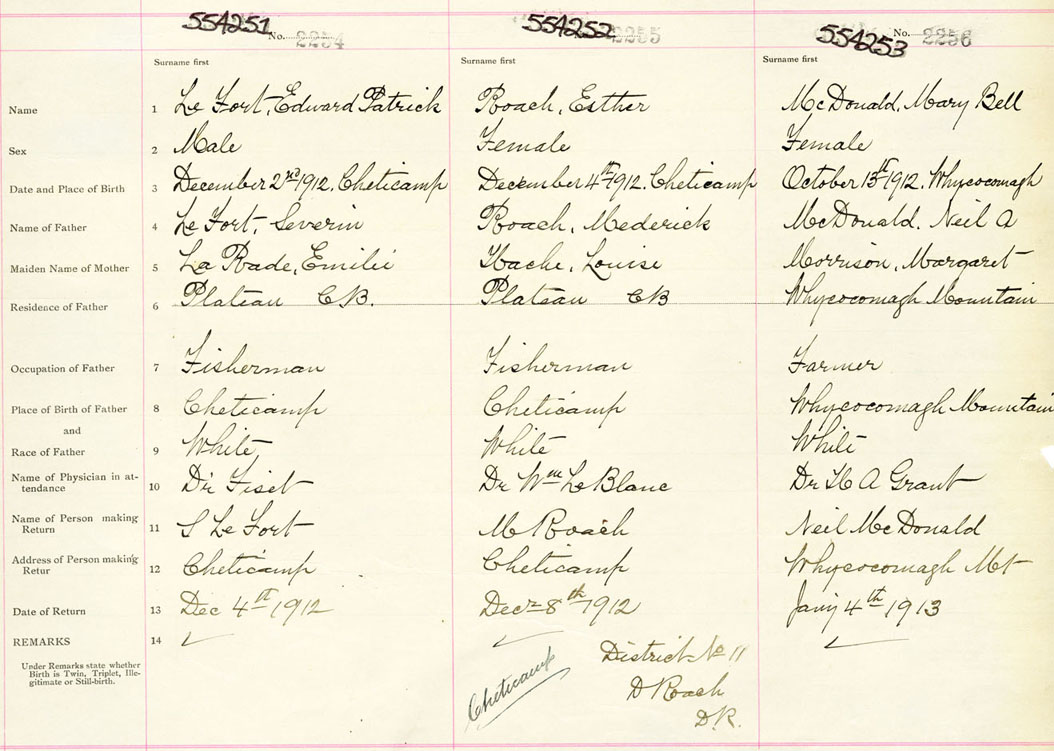 554251 No. 2254 554252 2255 554253 No. 2256
Surname first Surname first Surname first
Name 1 Le Fort, Edward Patrick Roach, Esther McDonald, Mary Bell
Sex 2 Male Female Female
Date and Place of Birth 3 December 2nd 1912. Cheticamp December 4th 1912. Cheticamp October 15th 1912. Whycocomagh
Name of Father 4 Le Fort, Severin Roach, Mederick McDonald, Neil A
Maiden Name of Mother 5 La Rade, Emilie Hache, Louise Morrison, Margaret
Residence of Father 6 Plateau CB. Plateau CB Whycocomagh Mountain
Occupation of Father 7 Fisherman Fisherman Farmer
Place of Birth of Father 8 Cheticamp Cheticamp Whycocomagh Mountain
and
Race of Father 9 White White White
Name of Physician in at-
tendance 10 Dr Fiset Dr Wm Le Blanc Dr H A Grant
Name of Person making
Return 11 S Le Fort M Roach Neil McDonald
Address of Person making
Retur 12 Cheticamp Cheticamp Whycocomagh Mt
Date of Return 13 Dec 4th 1912 Decr 8th 1912 Jany 4th 1913
REMARKS 14
Under Remarks state whether
Birth is Twin, Triplet, Ille-
gitimate or Still-birth.
Cheticamp
District No 11
D Roach
D.R.